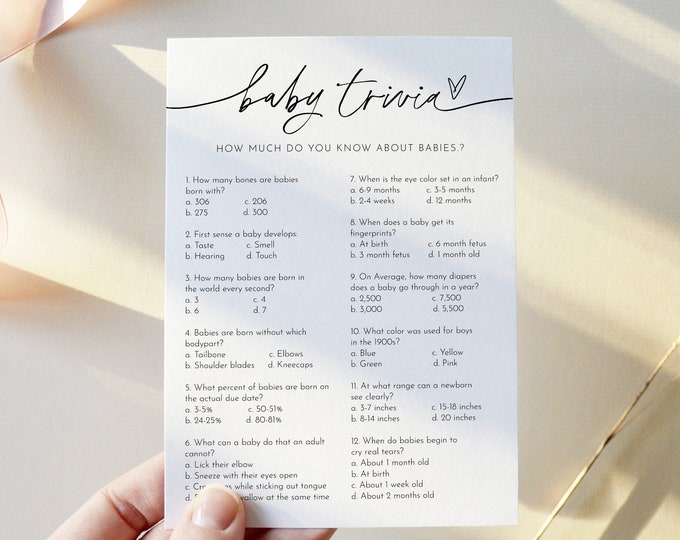 baby trivia
HOW MUCH DO YOU KNOW ABOUT BABIES.?
1. How many bones are babies
born with?
a. 306 c. 206
b. 275 d. 300
2. First sense a baby develops:
a. Taste c. Smell
b. Hearing d. Touch
3. How many babies are born in
the world every second?
a. 3 c. 4
b. 6 d. 7
4. Babies are born without which
bodypart?
a. Tailbone c. Elbows
b. Shoulder blades d. Kneecaps
5. What percent of babies are born on
the actual due date?
a. 3-5% c. 50-51%
b. 24-25% d. 80-81%
6. What can a baby do that an adult
cannot?
a. Lick their elbow
b. Sneeze with their eyes open
c. while sticking out tongue
d. at the same time
7. When is the eye color set in an infant?
a. 6-9 months c. 3-5 months
b. 2-4 weeks d. 12 months
8. When does a baby get its
fingerprints?
a. At birth c. 6 month fetus
b. 3 month fetus d. 1 month old
9. On Average, how many diapers
does a baby go through in a year?
a. 2,500 c. 7,500
b. 3,000 d. 5,500
10. What color was used for boys
in the 1900s?
a. Blue c. Yellow
b. Green d. Pink
11. At what range can a newborn
see clearly?
a. 3-7 inches c. 15-18 inches
b. 8-14 inches d. 20 inches
12. When do babies begin to
cry real tears?
a. About 1 month old
b. At birth
c. About 1 week old
d. About 2 months old